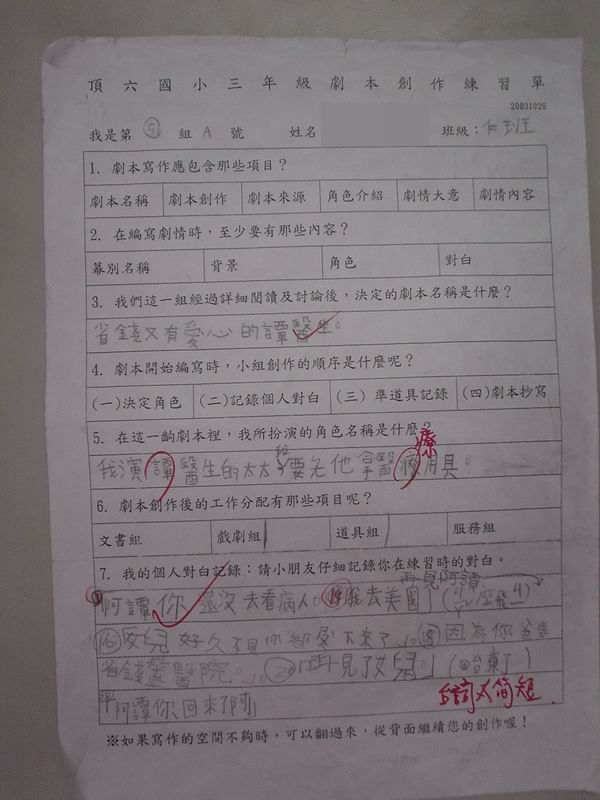 頂六國小三年級劇本創作練習單
20031020
我是第 5 組 A 號 姓名 班級:仁班
1. 劇本寫作應包含那些項目?
劇本名稱 劇本創作 劇本來源 角色介紹 劇情大意 劇情內容
2. 在編寫劇情時,至少要有那些內容?
幕別名稱 背景 角色 對白
3. 我們這一組經過詳細閱讀及討論後,決定的劇本名稱是什麼?
省錢又有愛心的譚醫生。
4. 劇本開始編寫時,小組創作的順序是什麼呢?
(一)決定角色 (二)記錄個人對白 (三) 準道具記錄 (四)劇本抄寫
5. 在這一齣劇本裡,我所扮演的角色名稱是什麼?
療
我演譚醫生的太太 要幺他拿醫 用具。
6. 劇本創作後的工作分配有那些項目呢?
文書組 戲劇組 道具組 服務組
7. 我的個人對白記錄:請小朋友仔細記錄你在練習時的對白。
再見阿譚
阿譚你還沒去看病人。 我去美國」
女兒好久不見你都 不來了 因為你爸爸
省錢 醫院。 再見了女兒」(回台東了)
阿譚你回來了阿」
台詞太簡短.
※如果寫作的空間不夠時,可以翻過來,從背面繼續您的創作喔!